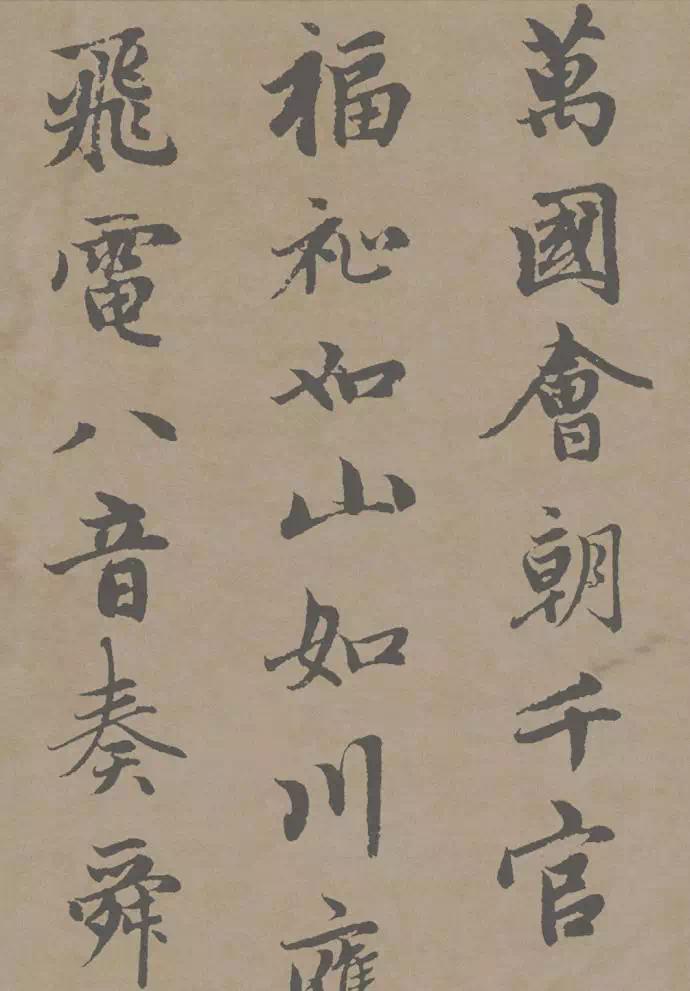 萬國會朝千官
福祉如山如川
飛電八音奏舜